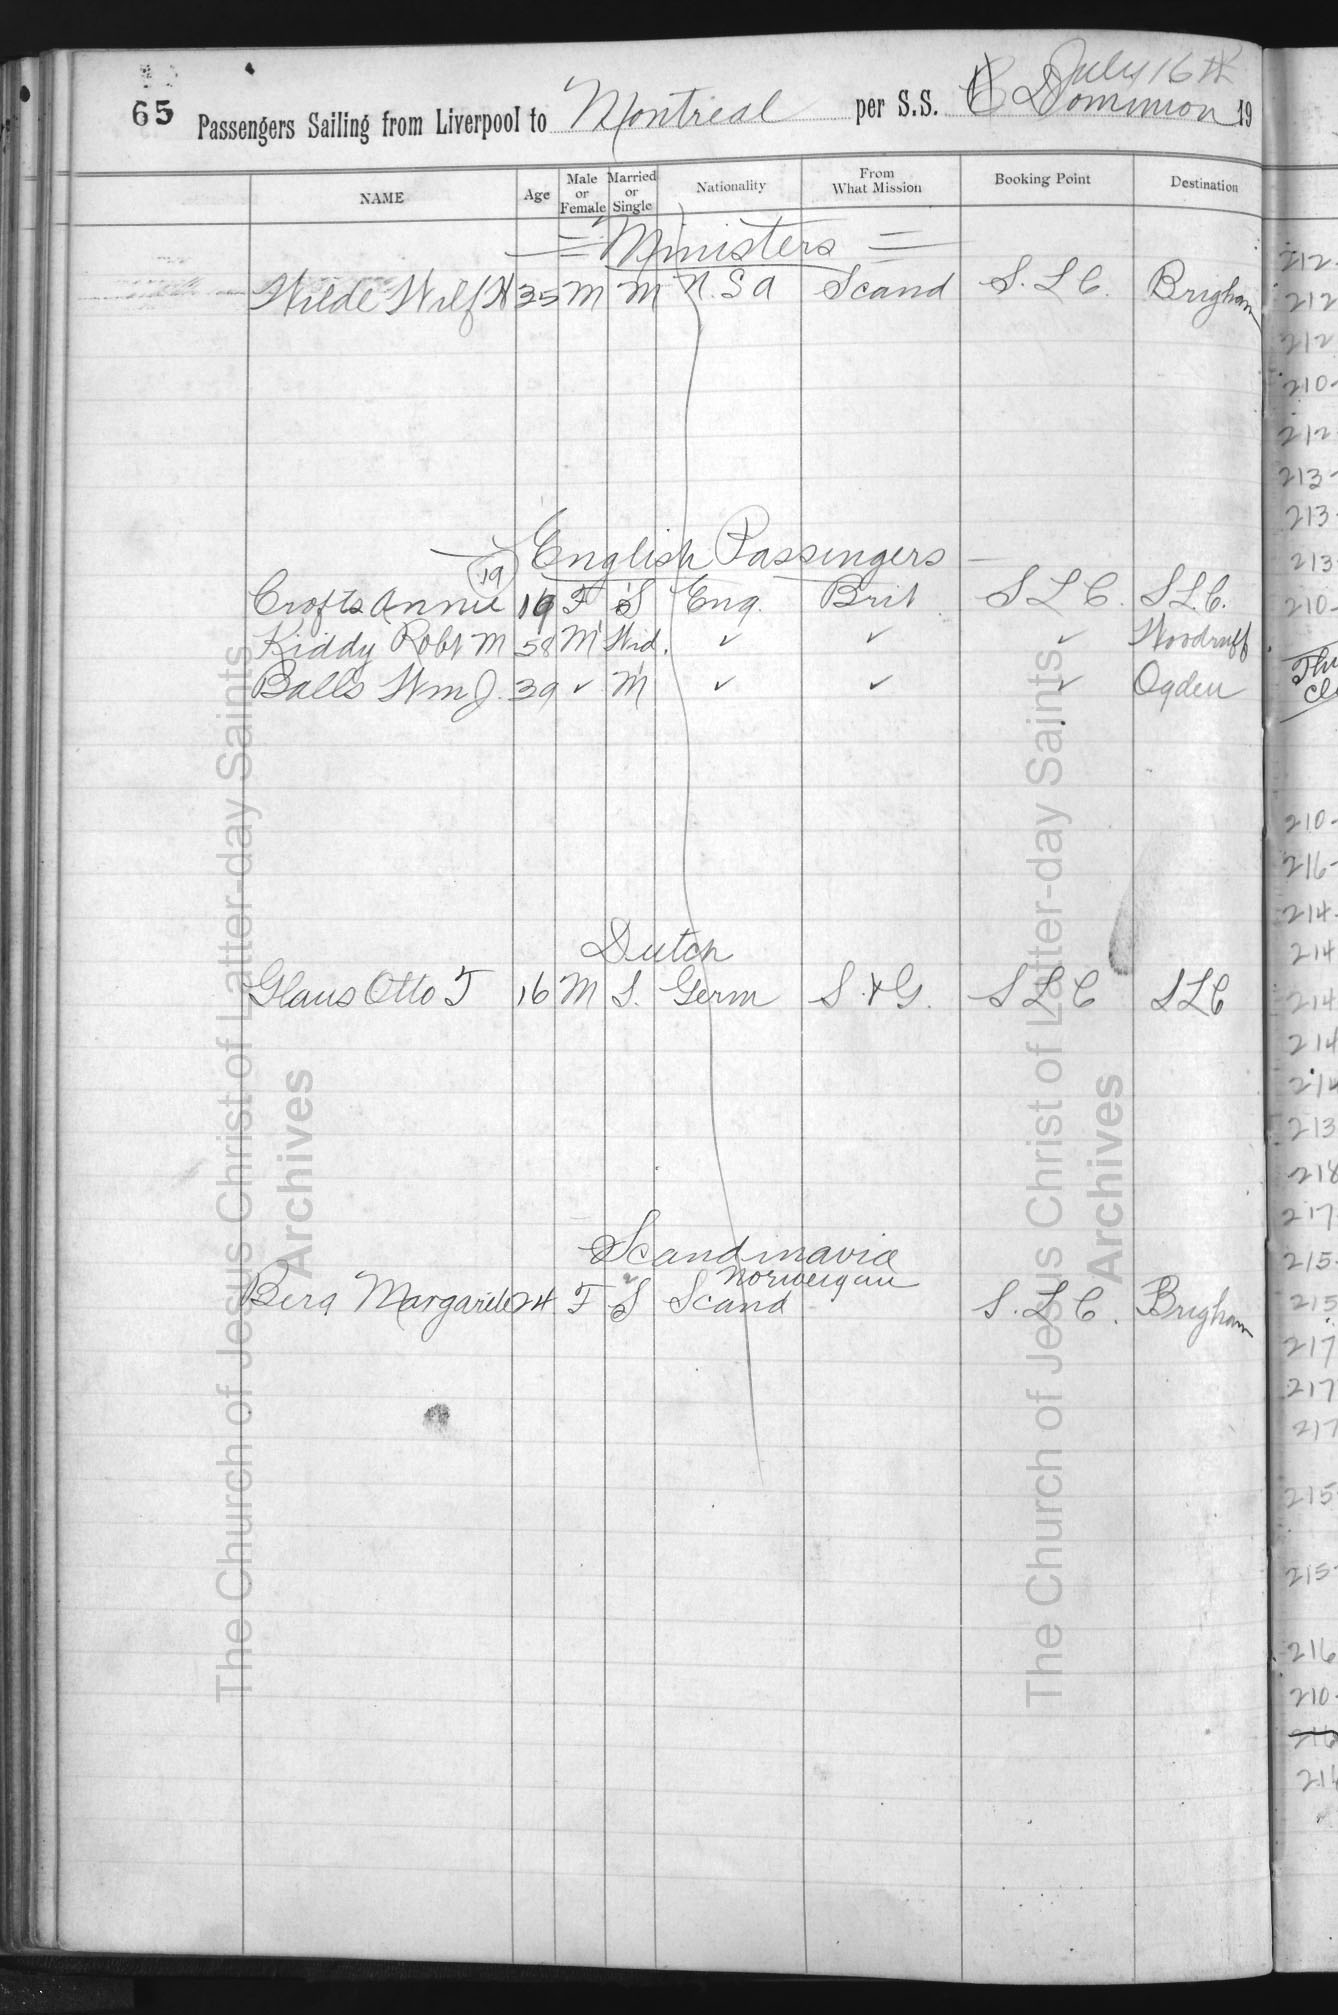 65 Passengers Sailing from Liverpool to Montreal per S.S. Dominion 19
July 16th
NAME Age Male or Female Married or Single Nationality From What Mission Booking Point Destination
= Ministers =
Wilde Wilf H 35 M M U.S.A Scand S.L.C. Brigham
English Passengers
19
Crofts Annie 19 F S Eng. Brit S L C. S.L.C.
Kiddy Robt M 58 M Wid. ✓ ✓ ✓ Woodruff
Balls Wm J. 39 ✓ M ✓ ✓ ✓ Ogden
Dutch
Glaus Otto T 16 M S. Germ S. & G. S L C S L C
Scandinavia
Norweigan
Berg Margarete 24 F S Scand S. L. C. Brigham
The Church of Jesus Christ of Latter-day Saints
Archives
The Church of Jesus Christ of Latter-day Saints
Archives
212
212
212
210-
212
213-
213
213
210-
210-
216-
214-
214
214
214
214
213
218
217
215-
215
217
217
217
215
215-
216
210-
216